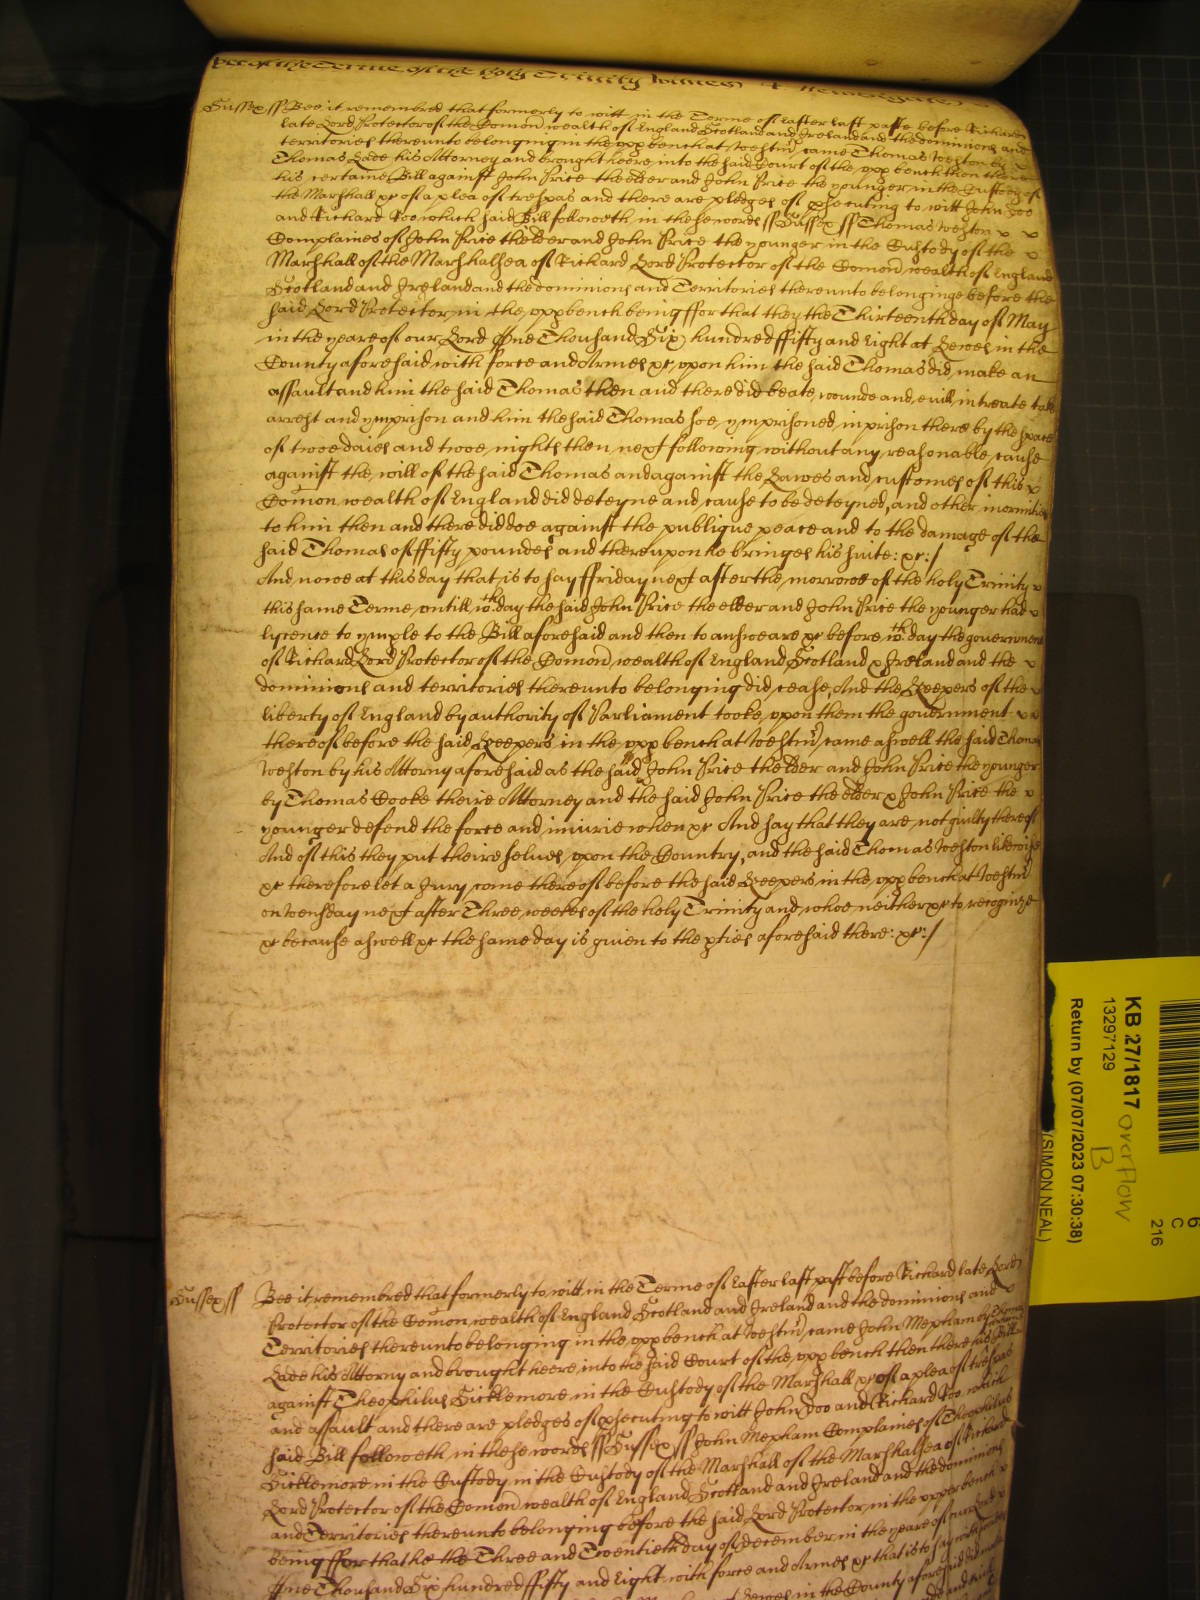 yet of the Terme of the holy Trinity Witnes
Sussex ss Bee it remembred that formerly to witt in the Terme of Easter last paste before Richard
late Lord Protector of the Com̄on wealth of England Scotland and Ireland and the dominions and
territories thereunto belonging in the upp bench at Westmr came Thomas Weston by
Thomas Lade his Attorney and brought heere into the said Court of the upp bench then there
his certaine Bill against John Price the elder and John Price the younger in the Custody of
the Marshall &c of a plea of trespas and there are pledges of p̱secuting to witt John Doo
and Richard Roo which said Bill followeth in these words ss Sussex ss Thomas Weston
Complaines of John Price thelder and John Price the younger in the Custody of the
Marshall of the Marshalsea of Richard Lord Protector of the Com̄on wealth of England
Scotland and Ireland and the dominions and Territories thereunto belonginge before the
said Lord Protector in the upp bench being ffor that they the Thirteenth day of May
in the yeare of our Lord One Thousand Six hundred ffifty and Eight at Lewes in the
County aforesaid with force and Armes &c upon him the said Thomas did make an
assault and him the said Thomas then and there did beate wounde and evill intreate take
arrest and ymprison and him the said Thomas soe ymprisoned in prison there by the space
of twoe daies and twoe nights then next following without any reasonable cause
against the will of the said Thomas and against the Lawes and customes of this
Com̄on wealth of England did deteyne and cause to be deteyned, and other inormities
to him then and there did doe against the publique peace and to the damage of the
said Thomas of ffifty poundes and thereupon he bringes his suite: &c:/
And nowe at this day that is to say ffriday next after the morrowe of the holy Trinity
this same Terme untill wch day the said John Price the elder and John Price the younger had
lycence to ymple to the Bill aforesaid and then to answeare &c before wch day the government
of Richard Lord Protector of the Com̄on wealth of England Scotland & Ireland and the
dominions and territories thereunto belonging did cease, And the Keepers of the
liberty of England by authority of Parliament tooke upon them the government
thereof before the said Keepers in the upp bench at Westmr came aswell the said Thomas
Weston by his Attorny aforesaid as the said John Price thelder and John Price the younger
by Thomas Cooke theire Attorney and the said John Price the elder & John Price the
younger defend the force and iniurie when &c And say that they are not guilty thereof
And of this they put theire selves upon the Country, and the said Thomas Weston likewise
&c therefore let a Jury come thereof before the said Keepers in the upp bench at Westmr
on Wensday next after Three weekes of the holy Trinity and whoe neither &c to recognize
&c because aswell &c the same day is given to the p̱ties aforesaid there: &c:/
Sussex ss Bee it remembred that formerly to witt in the Terme of Easter last past before Richard late Lord
Protector of the Com̄on wealth of England Scotland and Ireland and the dominions and
Territories thereunto belonging in the upp bench at Westmr came John Mepham by Thomas
Lade his Attorny and brought heere into the said Court of the upp bench then there his Bill
against Theophilus Sicklemore in the Custody of the Marshall &c of a plea of trespas
and assault and there are pledges of p̱secuting to witt John Doo and Richard Roo which
said Bill followeth in these words ss Sussex ss John Mepham Complaines of Theophilus
Sicklemore in the Custody in the Custody of the Marshall of the Marshalsea of Richard
Lord Protector of the Com̄on wealth of England Scotland and Ireland and the dominions
and Territories thereunto belonging before the said Lord Protector in the upper bench
being ffor that he the Three and Twentieth day of december in the yeare of our Lord
One Thousand Six hundred ffifty and Eight with force and Armes &c that is to say with
Lewes in the County aforesaid did make
KB 27/1817 overflow
B
13297129
Return by (07/07/2023 07:30:38)
(SIMON NEAL)
6
C
216